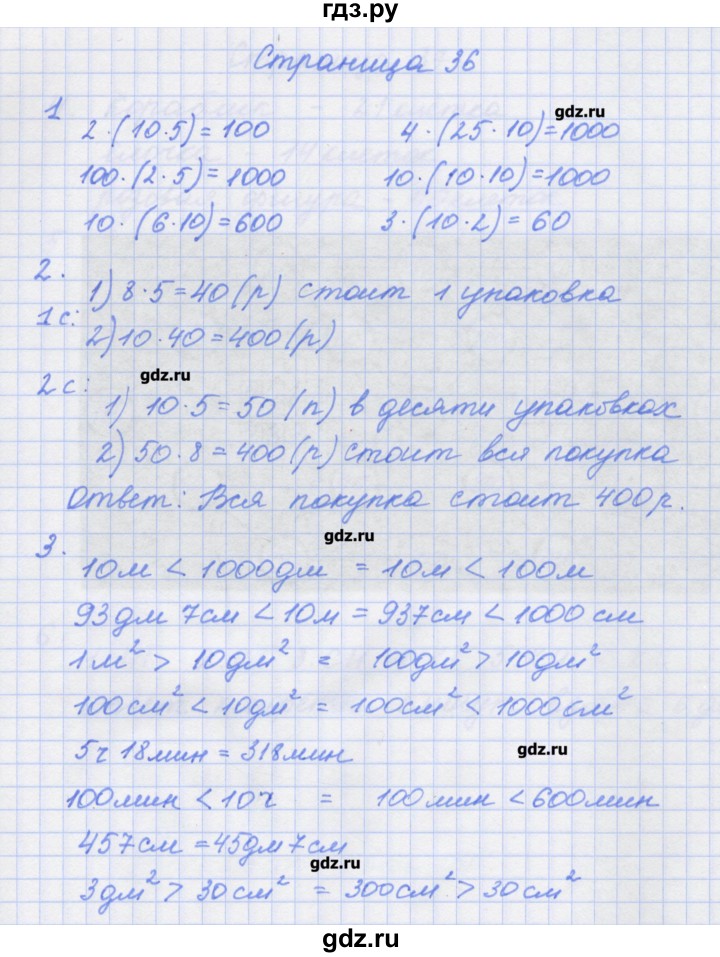 гдз.ру
Страница 36
1
gdz.ru
2·(10·5)=100 4·(25·10)=1000
100·(2·5)=1000 10·(10·10)=1000
10·(6·10)=600 3·(10·2)=60
2.
1) 8·5=40(р) стоит 1 упаковка
1с:
2) 10·40=400(р)
gdz.ru
2с:
1) 10·5=50(п) в десяти упаковках
2) 50·8=400(р) стоит вся покупка
Ответ: Вся покупка стоит 400р.
gdz.ru
3.
10м < 1000дм = 10м < 100м
93дм 7см < 10м = 937см < 1000см
1м² > 10дм² = 100дм² > 10дм²
100см² < 10дм² = 100см² < 1000см²
5ч 18мин = 318мин gdz.ru
100мин < 10ч = 100мин < 600мин
457см = 45дм 7см
gdz.ru
3дм² > 30см² = 300см² > 30см²
gdz.ru